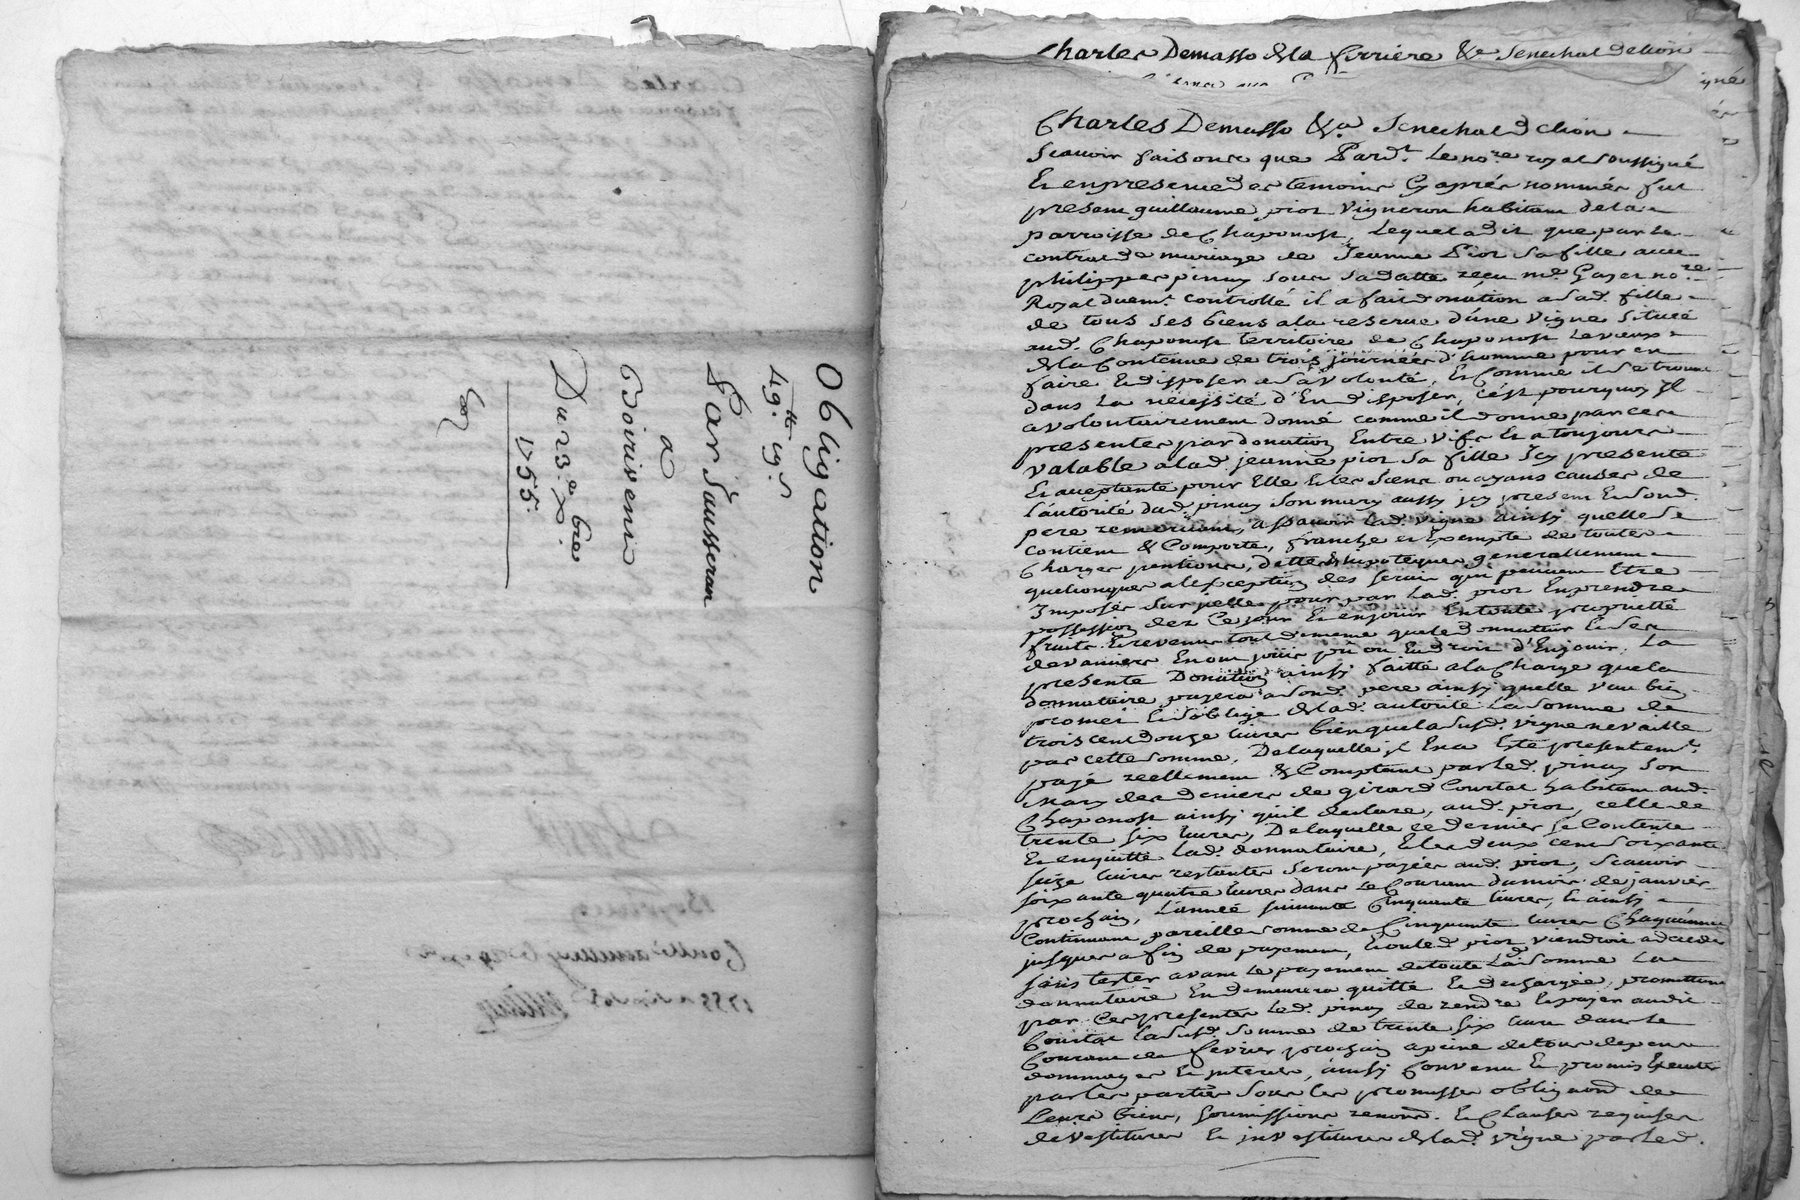 Obligation
49.tt 19.s
Par Sausseran
a
Boirivent
Du 23.e xbre
1755.
Charles Demasso &la ferriere &c Senechal delion
Charles Demasso &a Senechal d elion
Scavoir faisons que Pard.t Le no.re royal soussigné
Et enpresence des temoins Cy aprés nommés fut
present guillaume pior vigneron habitant dela
parroisse de Chaponost, Lequel a dit que par le
contrat de mariage de Jeanne Pior Sa fille avec
philippes pinay sous sa datte reçu m.e Gayet no.re
Royal duem.t controllé il a fait donation a Lad. fille
de tous ses biens ala reserve d'une vigne Située
aud. Chaponost territoire de Chaponost Levieux
dela Contenue de trois journées d'homme pour en
faire Et disposer a sa volonté, Et Comme il se trouve
dans La nécessité d'En disposer, c'ést pourquoy Il
a volontairement donné comme il donne par ces
presentes par donation Entre vifs Et a toujours
valable a lad. jeanne pior sa fille Icy presente
Et acceptante pour Elle Et les siens ou ayans causes de
L'autorité dud. pinay Son mary aussy icy present Et sond.
pere remerciant, a scavoir Lad. vigne ainsy quelle se
Contient & Comporte, franche et Exempte de toutes
Charges pentions, dettes & hipoteques generallement
quelconques alexception des servis qui peuvent Etre
Imposés Sur jcelle pour par Lad. pior Enprendre
possession dez Ce jour Et en jouir En toute proprieté
fruits Et revenus tout de meme que led onnateur Et ses
devanciers En ont jouis pu ou Eu droit d'Enjouir. La
presente Donation ainsy faitte ala Charge que la
donnataire payera a sond. pere ainsy quelle veut bien
promet Et s'oblige de lad. autorité La somme de
trois cent douze livres bien que la susd. vigne ne vaille
pas cette somme, De laquelle il En a Eté presentem.t
payé reellement & Comptant par led. pinay Son
mary des deniers de girard Courtat habitant aud.
Chaponost ainsy qu'il declare, aud. pior, celle de
trente six livres, De laquelle ce dernier se Contente
Et enquitte Lad. donnataire, Et les deux cent soixante
seize livres restantes seront payées aud. pior, Scavoir
soixante quatre livres dans Le Courant du mois de janvier
prochain, L'année suivante Cinquante livres, et ainsy
Continuant pareille somme de Cinquante livres Chaque année
jusques a fin de payement, Et ou led. pior viendroit a deceder
sans tester avant Le payement de toute Lad. somme La
donnataire En demeurera quitte Et dechargée, promettant
par Ces presentes Led. pinay de rendre Et payer audit
Courtat la susd. Somme de trente six livres dans le
Courant de fevrier prochain a peine de tous depens
dommages Et interets, ainsy Convenu Et promis Executer
par les parties Sous les promesses oblig.aons de
Leurs biens, Soumissions renonc. Et Clauses requises
devestitures Et investitures de lad. vigne par led.